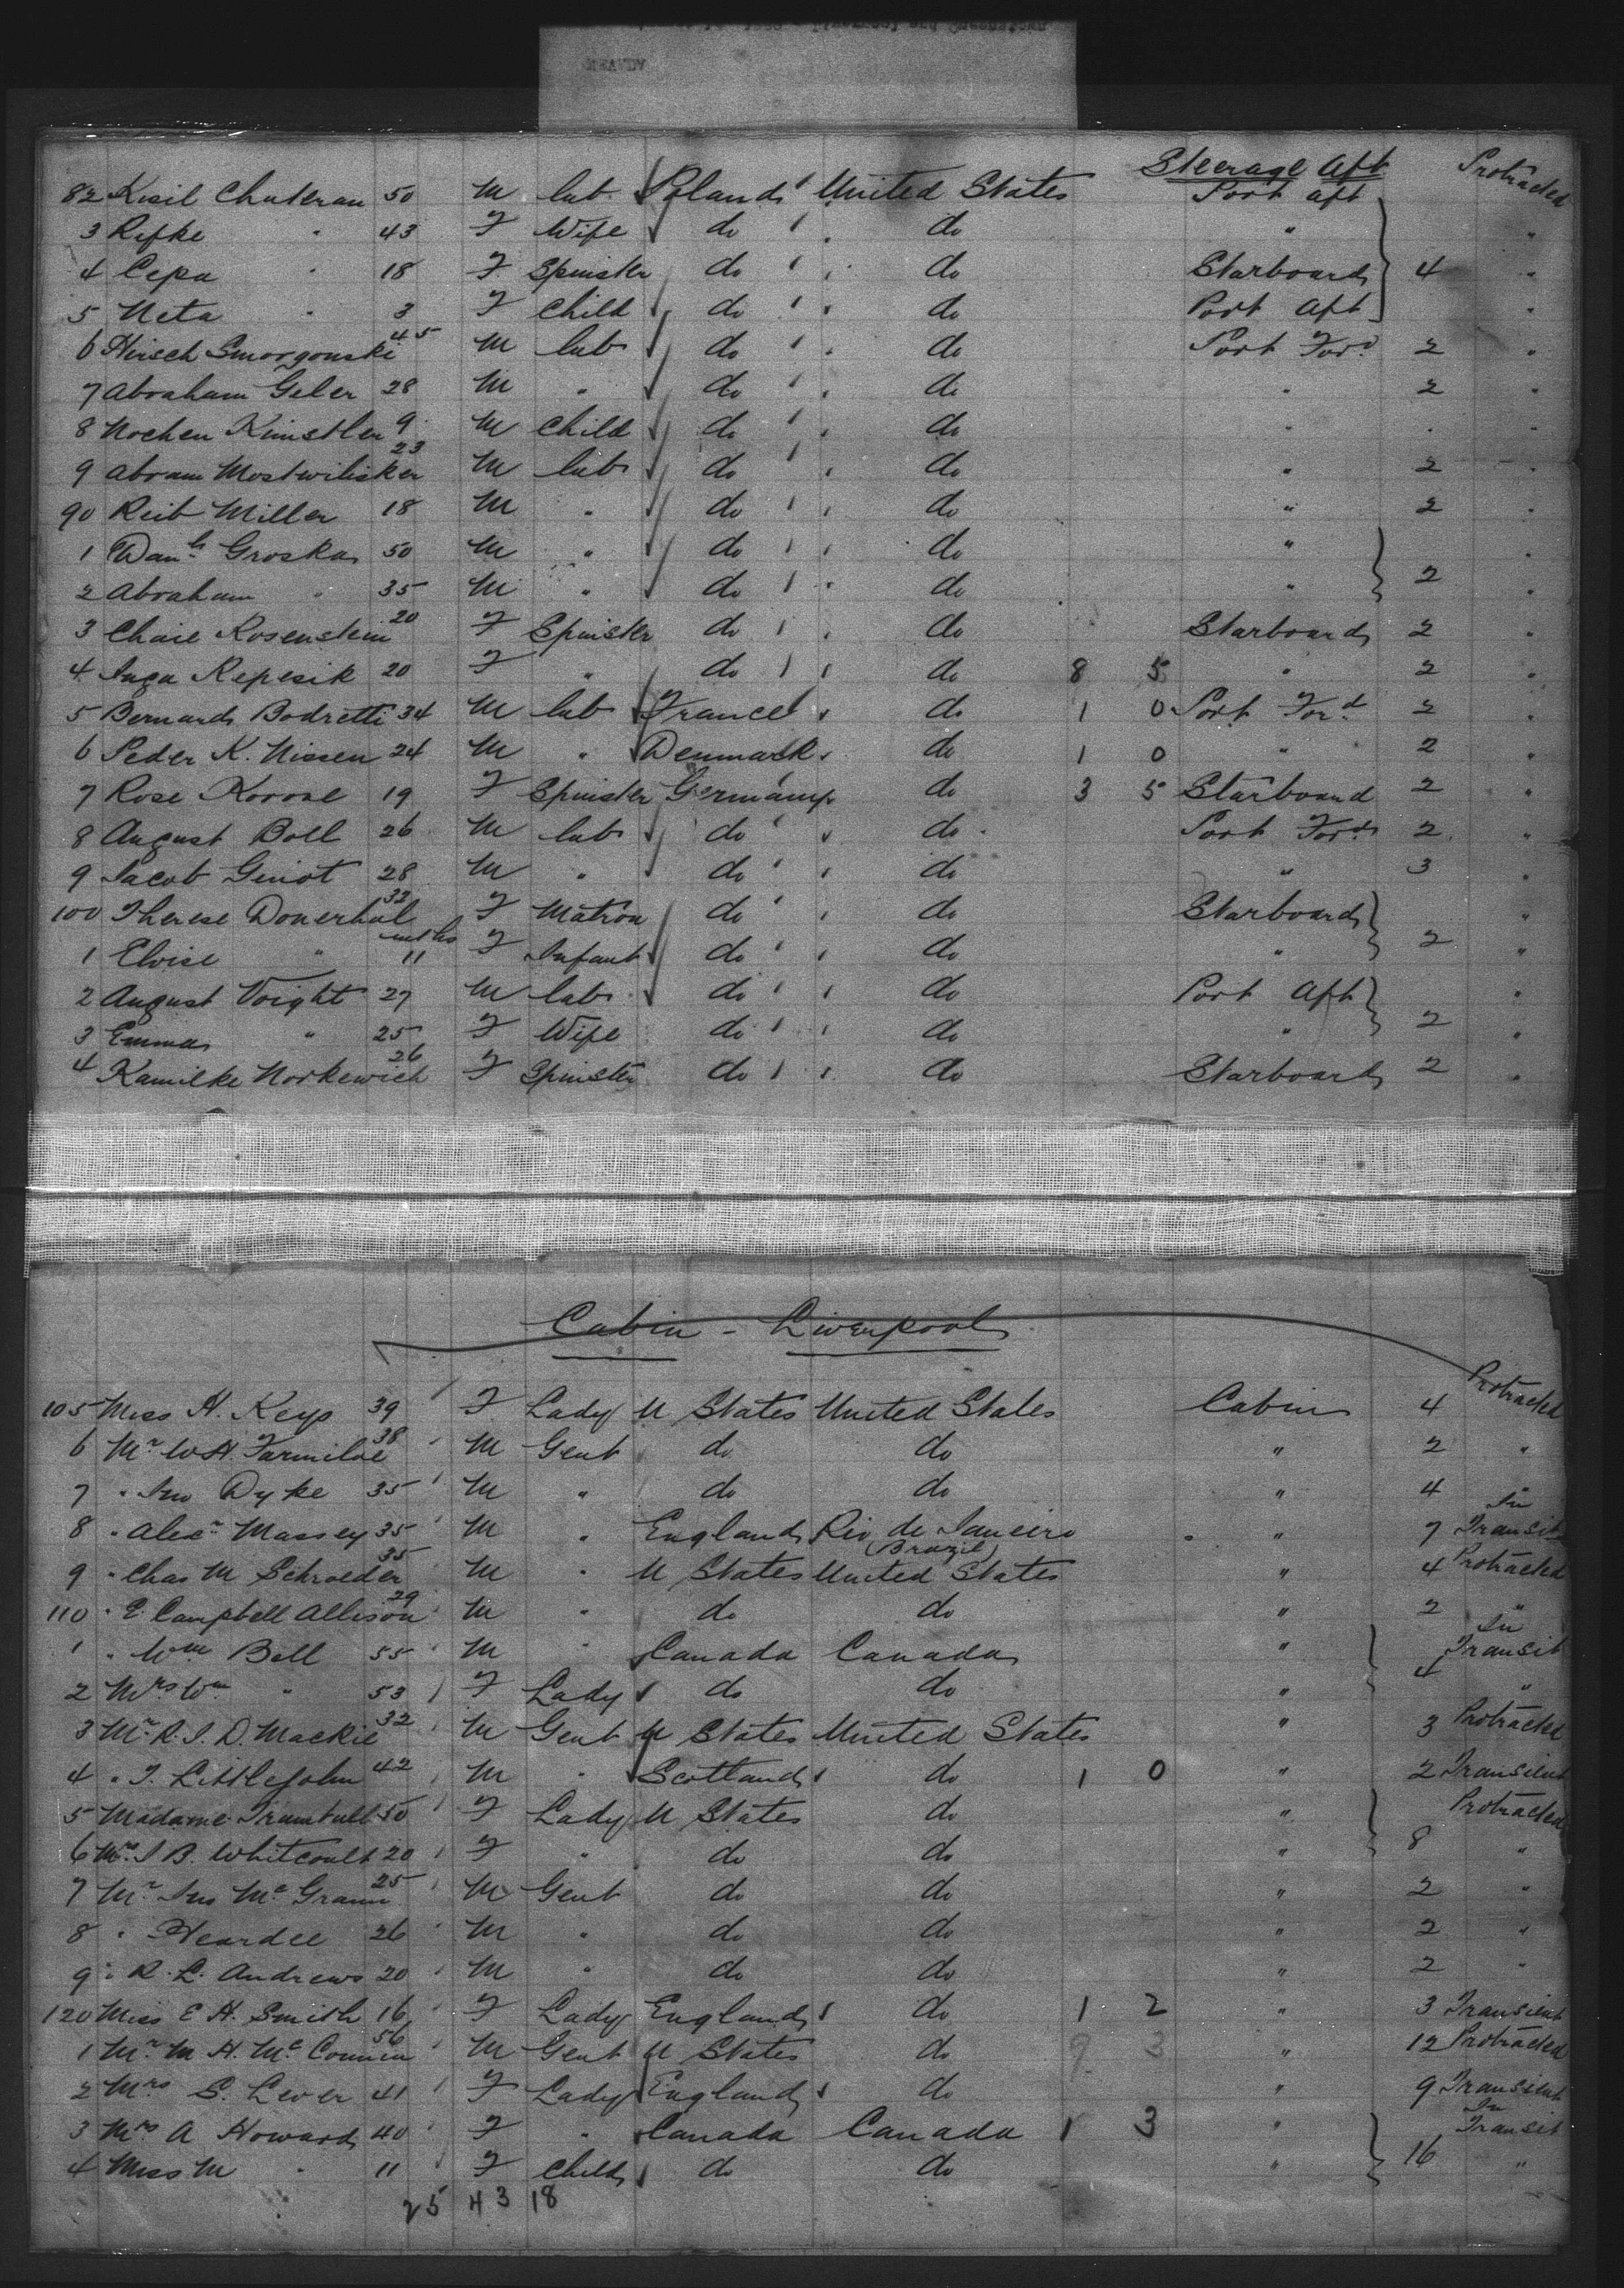 Steerage Aft Protracted
82 Kisil Chuteran 50 M lab. Poland United States Port Aft
3 Rifke " 43 F Wife do do " "
4 Cepa " 18 F Spinster do do Starboard 4 "
5 Neta " 3 F Child do do Port Aft "
6 Hirsch Smorgonski 45 M lab do do Port Ford 2 "
7 Abraham Geler 28 M " do do " 2 "
8 Nochen Kimstler 9 M Child do do " " "
9 Abram Mostwilisker 23 M lab do do " 2 "
90 Reib Miller 18 M " do do " 2 "
1 Danl Groska 50 M " do do " "
2 Abraham " 35 M " do do " 2 "
3 Chaie Rosenstein 20 F Spinster do do Starboard 2 "
4 Inga Repesik 20 F " do do 8 5 " 2 "
5 Bernard Bodretti 34 M lab France do 1 0 Port Ford 2 "
6 Peder K. Nissen 24 M " Denmark do 1 0 " 2 "
7 Rose Korose 19 F Spinster Germany do 3 5 Starboard 2 "
8 August Boll 26 M lab do do Port Ford 2 "
9 Jacob Giniot 28 M " do do " 3 "
100 Therese Donerhal 32 F Matron do do Starboard "
1 Eloise " mths 11 F Infant do do " 2 "
2 August Voight 27 M lab do do Port Aft "
3 Emma " 25 F Wife do do " 2 "
4 Kamilke Norkewich 26 F Spinster do do Starboard 2 "
Cabin - Liverpool
105 Miss H. Keys 39 F Lady U States United States Cabin 4 Protracted
6 Mr W H. Farmiloe 38 M Gent do do " 2 "
7 " Jno Dyke 35 M " do do " 4 "
8 " Alexr Massey 35 M " England Rio de Janeiro (Brazil) " 7 In Transit
9 " Chas M Schroeder 35 M " U States United States " 4 Protracted
110 " E. Campbell Allison 29 M " do do " 2 "
1 " Wm Bell 55 M " Canada Canada " In Transit
2 Mrs Wm " 53 F Lady do do " 4 "
3 Mr R. J. D. Mackie 32 M Gent U States United States " 3 Protracted
4 " T. Littlejohn 42 M " Scotland do 1 0 " 2 Transient
5 Madame Trumbull 50 F Lady U States do " Protracted
6 Mrs J B. Whitcoult 20 F " do do " 8 "
7 Mr Jno Mc Grann 25 M Gent do do " 2 "
8 " Heardee 26 M " do do " 2 "
9 " R. L. Andrews 20 M " do do " 2 "
120 Miss E H. Smith 16 F Lady England do 1 2 " 3 Transient
1 Mr M H. Mc Connen 56 M Gent U States do 9 3 " 12 Protracted
2 Mrs S. Lever 41 F Lady England do " 9 Transient
3 Mrs A Howard 40 F " Canada Canada 1 3 " In Transit
4 Miss M " 11 F Child do do " 16 "
25 43 18